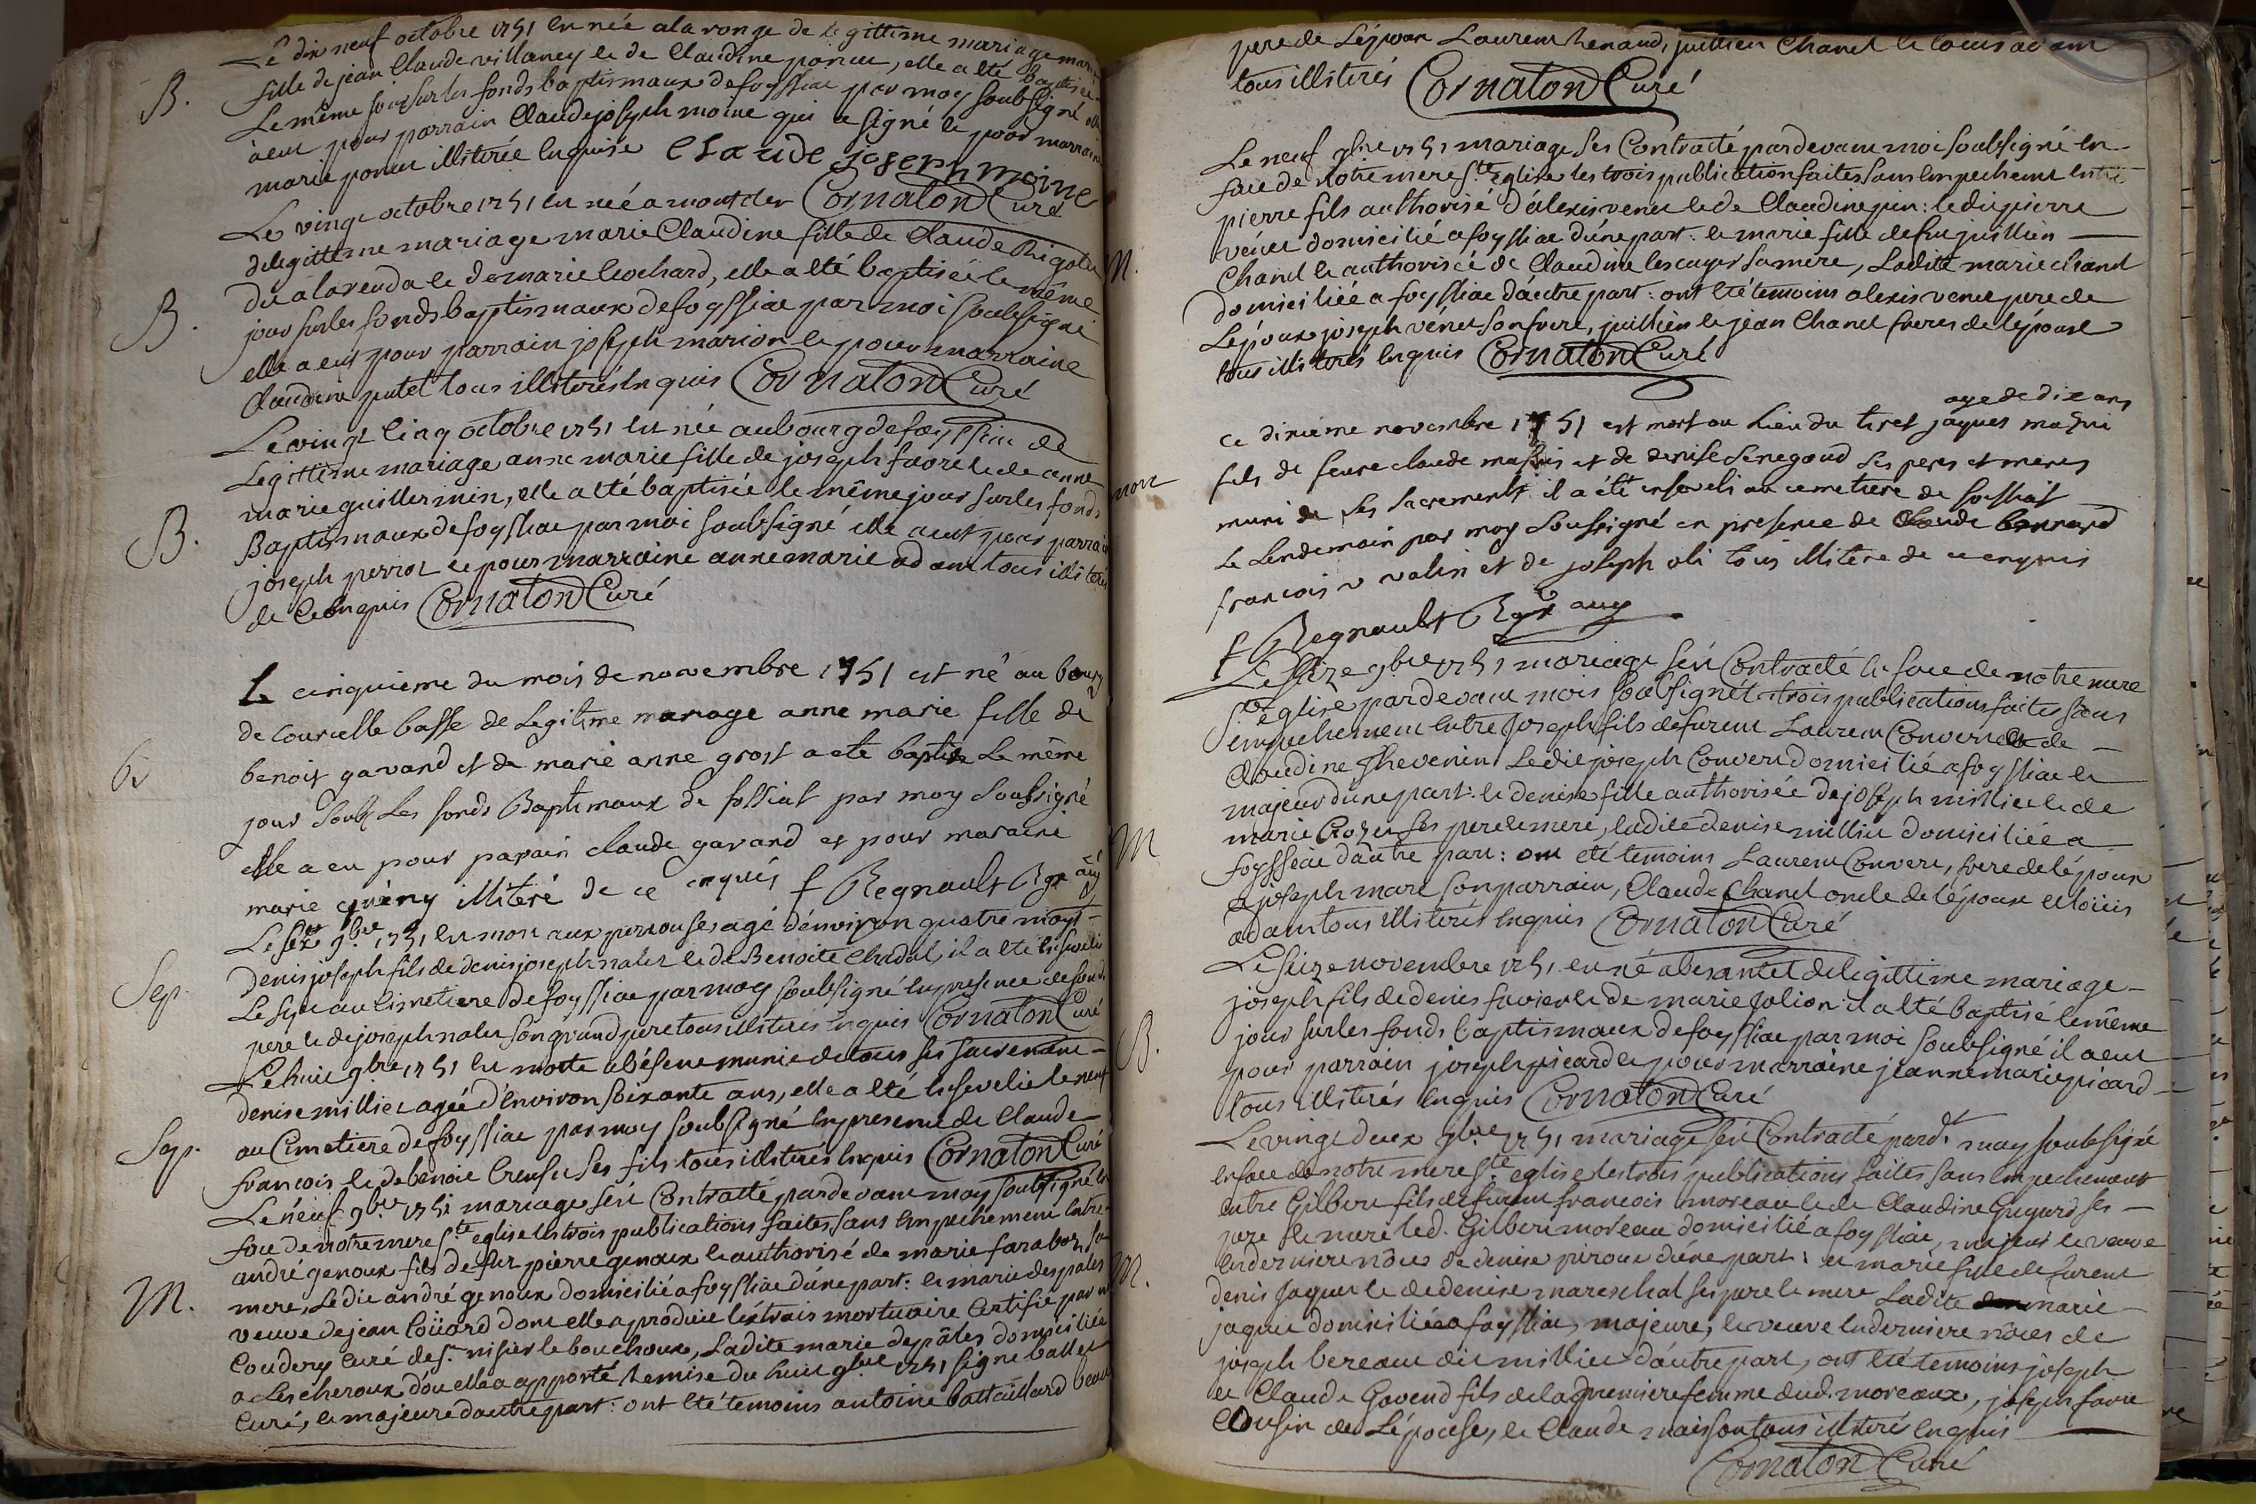 Le dix neuf octobre 1751 est née a la ronze de legittime mariage marie
B.
fille de jean Claude villaney et de Claudine poncin, elle a été baptisée
Le même jour sur les fonds baptismaux de foyssiac par moy soubsigné elle
à eut pour parrain Claude joseph moine qui a signé et pour marraine
marie poncin illiterée enquise Claude joseph moine
Cornaton Curé
Le vingt octobre 1751 est née a montcler
de legittime mariage marie Claudine fille de Claude Rigolet
du a la renda et de marie Cochard, elle a été baptisée le même
B.
jour sur les fonds baptismaux de foyssiac par moi soubsigné
elle a eut pour parrain joseph marion et pour marraine
Claudine putet tous illiterés enquis Cornaton Curé
Le vingt cinq octobre 1751 est née au bourg de foyssiac de
Legittime mariage anne marie fille de joseph favre et de anne
marie guillermin, elle a été baptisée le même jour sur les fonds
B.
Baptismaux de foyssiac par moi soubsigné elle a eut pour parrain
joseph perrot et pour marraine anne marie adam tous illiterés
de ce enquis Cornaton Curé
Le cinquieme du mois de novembre 1751 est né au bourg
de courcelle basse de Legitime mariage anne marie fille de
benoit gavand et de marie anne grost a ete baptise Le même
bt
jour soubs Les fonds Baptimaux de fossiat par moy soubsigné
elle a eu pour parain claude gavand et pour maraine
marie illiteré de ce enquis f Regnault
Le sept 9bre 1751 est mort aux perrouses agé d'environ quatre moys
Sep.
denis joseph fils de denis joseph nalet et de Benoite Chadal, il a été enseveli
Le sept au cimetiere de foyssiac par moy soubsigné en presence de son
pere et de joseph nalet son grand pere tous illiterés enquis Cornaton Curé
Le huit 9bre 1751 est morte a béseneu munie de tous ses sacrements
denise millier agée d'environ soixante ans, elle a été ensevelie le neuf
Sep.
au Cimetiere de foyssiac par moy soubsigné en presence de Claude
françois et de benoit Creuset ses fils tous illiterés enquis Cornaton Curé
Le neuf 9bre 1751 mariage s'est Contracté pardevant moy soubsigné en
face de notre mere Ste eglise les trois publications faites sans empechement entre
andré genoux fils de feu pierre genoux et authorisé de marie faraboz sa
M.
mere, Ledit andré genoux domicilié a foyssiac d'une part: et marie des pales
veuve de jean Coüard dont elle a produit lextrais mortuaire Certifié par
Coudery Curé de St. nisier le bouchoux, Ladite marie depâles domiciliée
a Lescheroux d'ou elle a apporté Remise du huit 9bre 1751 signé ballet
Curé, et majeure d'autre part: ont été temoins antoine battaillard beau
pere de Lépoux Laurent Renaud, juillien Chanel et louis adam
tous illiterés Cornaton Curé
Le neuf 9bre 1751 mariage s'es Contracté pardevant moi soubsigné en
face de notre mere Ste eglise les trois publication faites sans empechement entre
pierre fils authorisé d'alexis venet et de Claudine : ledit pierre
M.
vénet domicilié a foyssiac d'une part: et marie fille de feu juillien
Chanel et authorisée de Claudine Lescuyer sa mere, Ladite marie chanel
domiciliée a foyssiac d'autre part: ont été temoins alexis venet pere de
Lépoux joseph vénet son frere, juillien et jean Chanel freres de lépouse
tous illiterés enquis Cornaton Curé
age de dix ans
ce dixieme novembre 1751 est mort au Lieu du tiret jaques mathui
fils de feu claude mathuis et de denise senegoud ses peres et meres
mort
muni de ses sacrements il a été enseveli au cemetiere de fossiat
Le Lendemain par moy Soussigné en presence de Claude bernard
francois v valin et de joseph oli tous illitere de ce enquis
f Regnault
Le seize 9bre 1751 mariage s'est Contracté en face de notre mere
Ste eglise pardevant mois soubsigné les trois publications faites sans
empechement entre joseph fils de furent Laurent Convert et de
Claudine Thevenin Ledit joseph Convert domicilié a foyssiac et
majeur d'une part: et denise fille authorisée de joseph millier et de
M
marie Crozet ses pere et mere, ladite denise millier domiciliée a
foyssiac d'autre part: ont été temoins Laurent Convert, frere de lépoux
et joseph marel son parrain, Claude Chanel oncle de lépoux et louis
adam tous illiterés enquis Cornaton Curé
Le seize novembre 1751 est né a besantet de legittime mariage
joseph fils de denis favier et de marie jolion il a été baptisé le même
B.
jour sur les fonds baptismaux de foyssiac par moi soubsigné il a eut
pour parrain joseph picard et pour marraine jeanne marie picard
tous illiterés enquis Cornaton Curé
Le vingt deux 9bre 1751 mariage s'est Contracté pardt. moy soubsigné
en face de notre mere Ste eglise les trois publications faites sans empechement
entre Gilbert fils de furent francois moreau et de Claudine Guyard ses
pere et mere led. Gilbert moreau domicilié a foyssiac, majeur et veuve
M.
en derniere nôces de denise piroux d'une part: et marie fille de furent
denis jaquet et de denise mareschal ses pere et mere Ladite marie
jaquet domiciliée a foyssiac, majeure, et veuve en derniere nôces de
joseph bereaux dit millier d'autre part, ont été temoins joseph
et Claude Gavend fils de la premiere femme dud. moreaux, joseph favre
Cousin de Lépouse, et Claude maisson tous illiterés enquis
Cornaton Curé